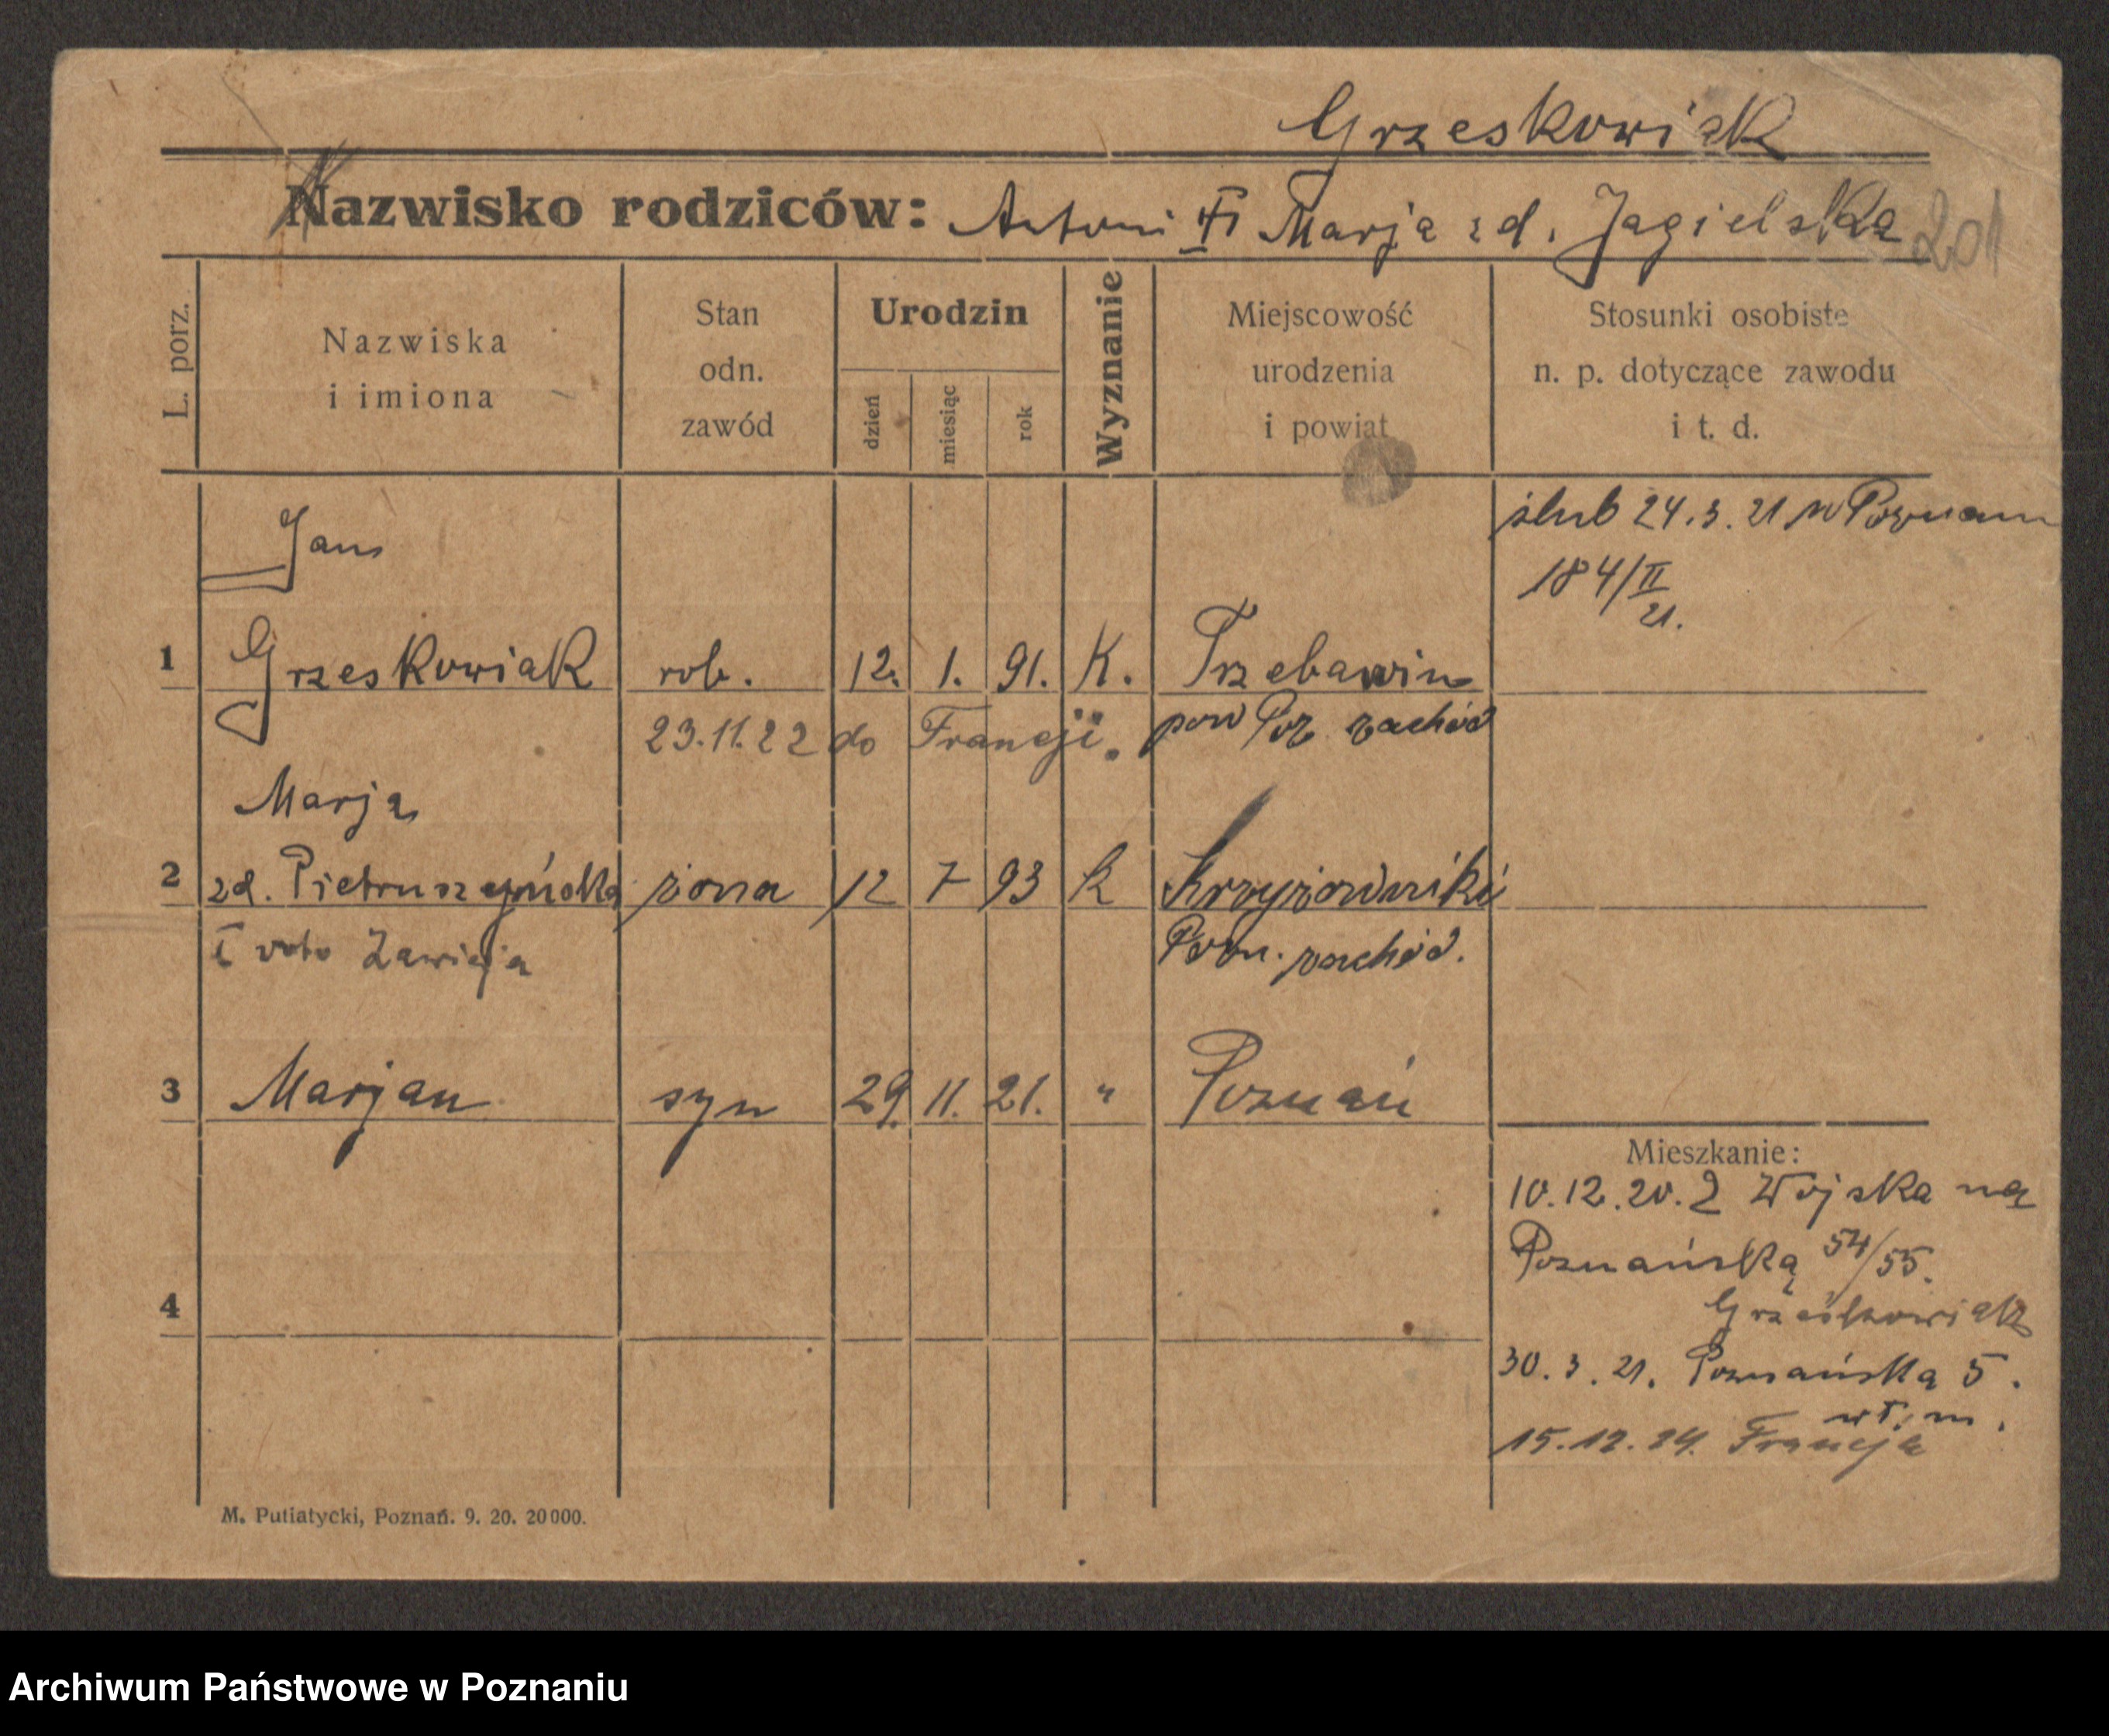 Grzeskowiak
Nazwisko rodziców: Antoni Marja zd. Jagielska 201
L. porz.
Nazwiska
i imiona
Stan
odn.
zawód
Urodzin
dzień
miesiąc
rok
Wyznanie
Miejscowość
urodzenia
i powiat
Stosunki osobiste
n. p. dotyczące zawodu
i t. d.
ślub 24.3.21 w Poznaniu
184/II
21.
Jan
1 Grzeskowiak rob. 12. 1. 91. K. Trzebawin
23.11.22 do Francji. pow Poz zachód
Marja
2 zd. Pietruszyńska żona 12 7 93 k Krzyżowniki
I voto Zawieja Pozn. zachód.
3 Marjan syn 29. 11. 21. " Poznań
Mieszkanie:
10.12.20. Z Wojska na
Poznańską 54/55.
Grześkowiak
4
30.3.21. Poznańska 5.
wł. m.
15.12.24. Francja
M. Putiatycki, Poznań. 9. 20. 20000.
Archiwum Państwowe w Poznaniu